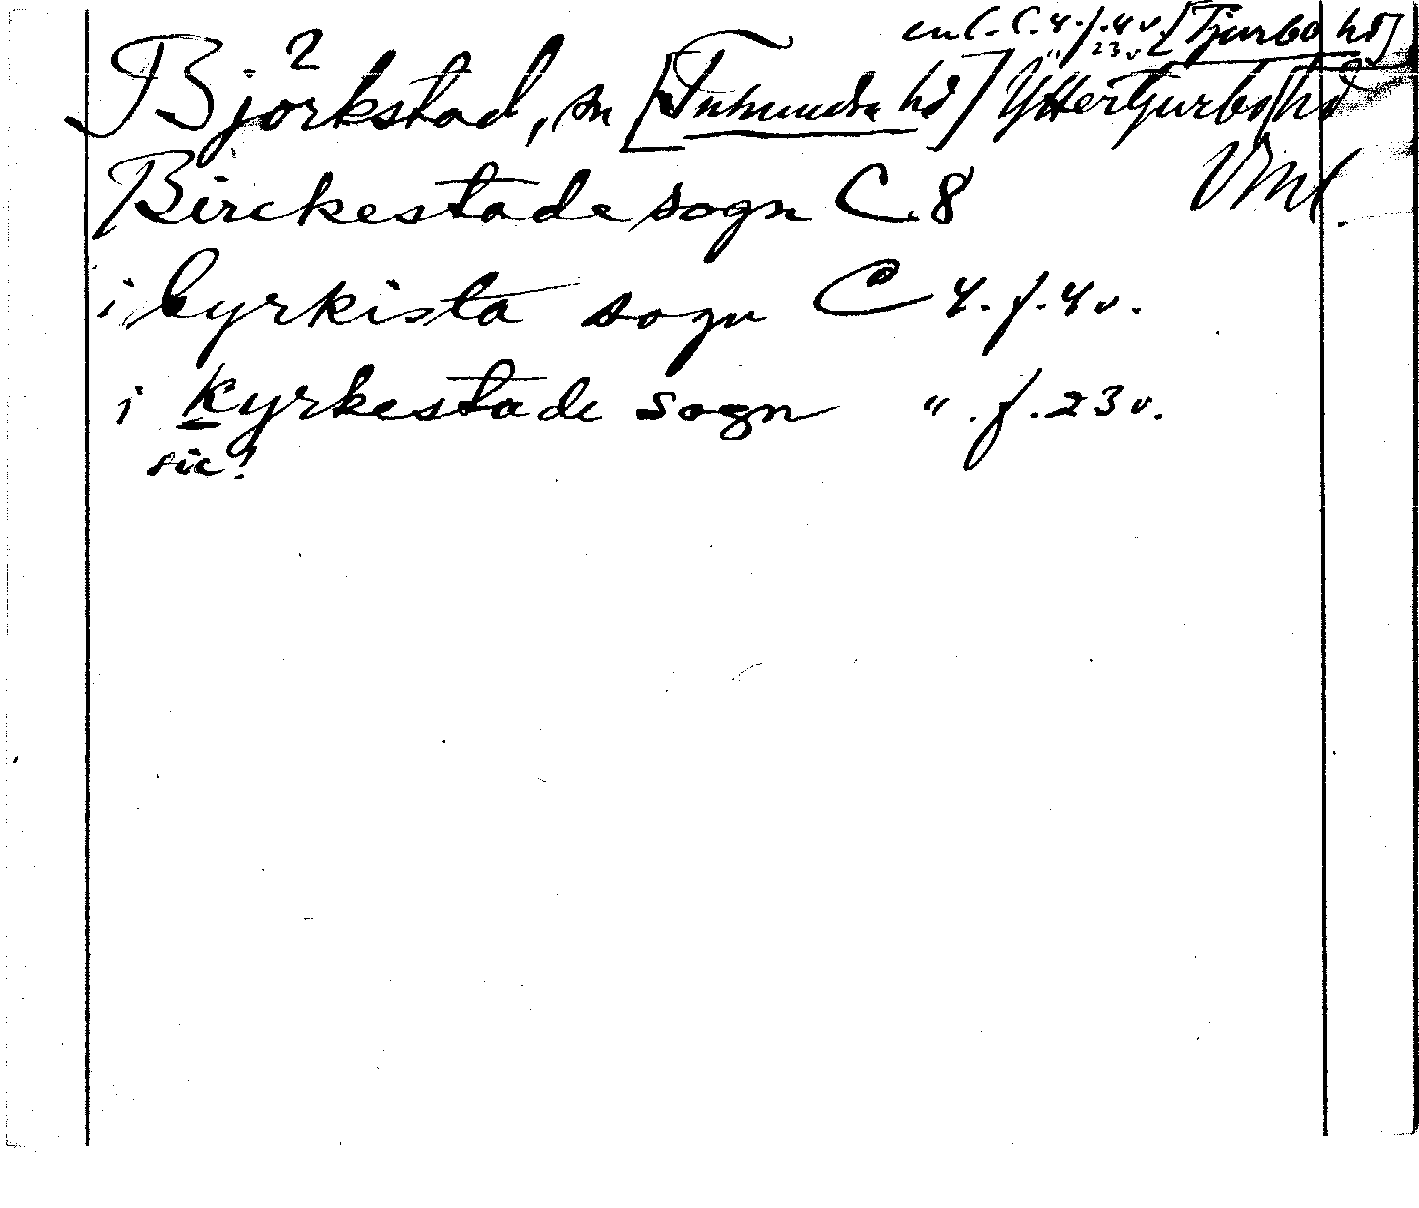 enl. C. 4. f. 4 v. [Tjurbo hd]
" 23 v
2
Björkstad, sn [Tuhundra hd] YtterTjurbo hd
Vml.
Birckestade sogn C 8
i byrkista sogn C 4. f. 4 v.
i kyrkestade sogn ". f. 23 v.
sic!